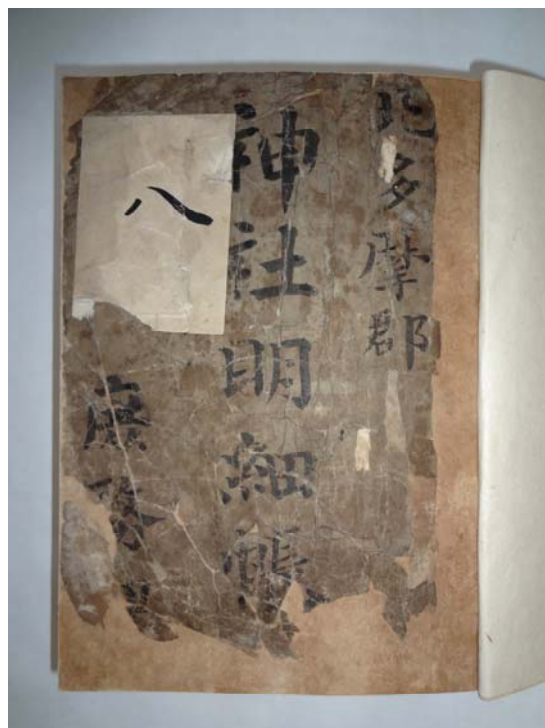 北多摩郡
神社明細帳
八
庶務